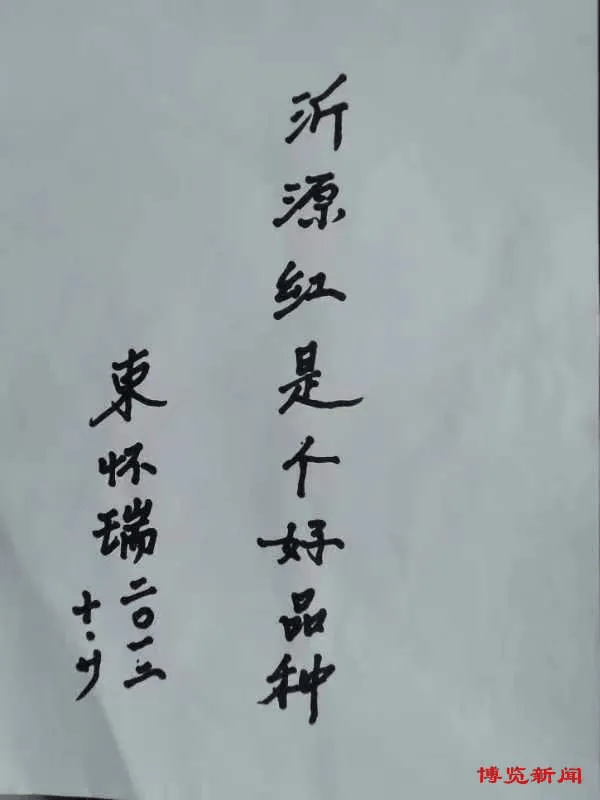 沂源红是个好品种
束怀瑞二〇一三
十·廿
博览新闻